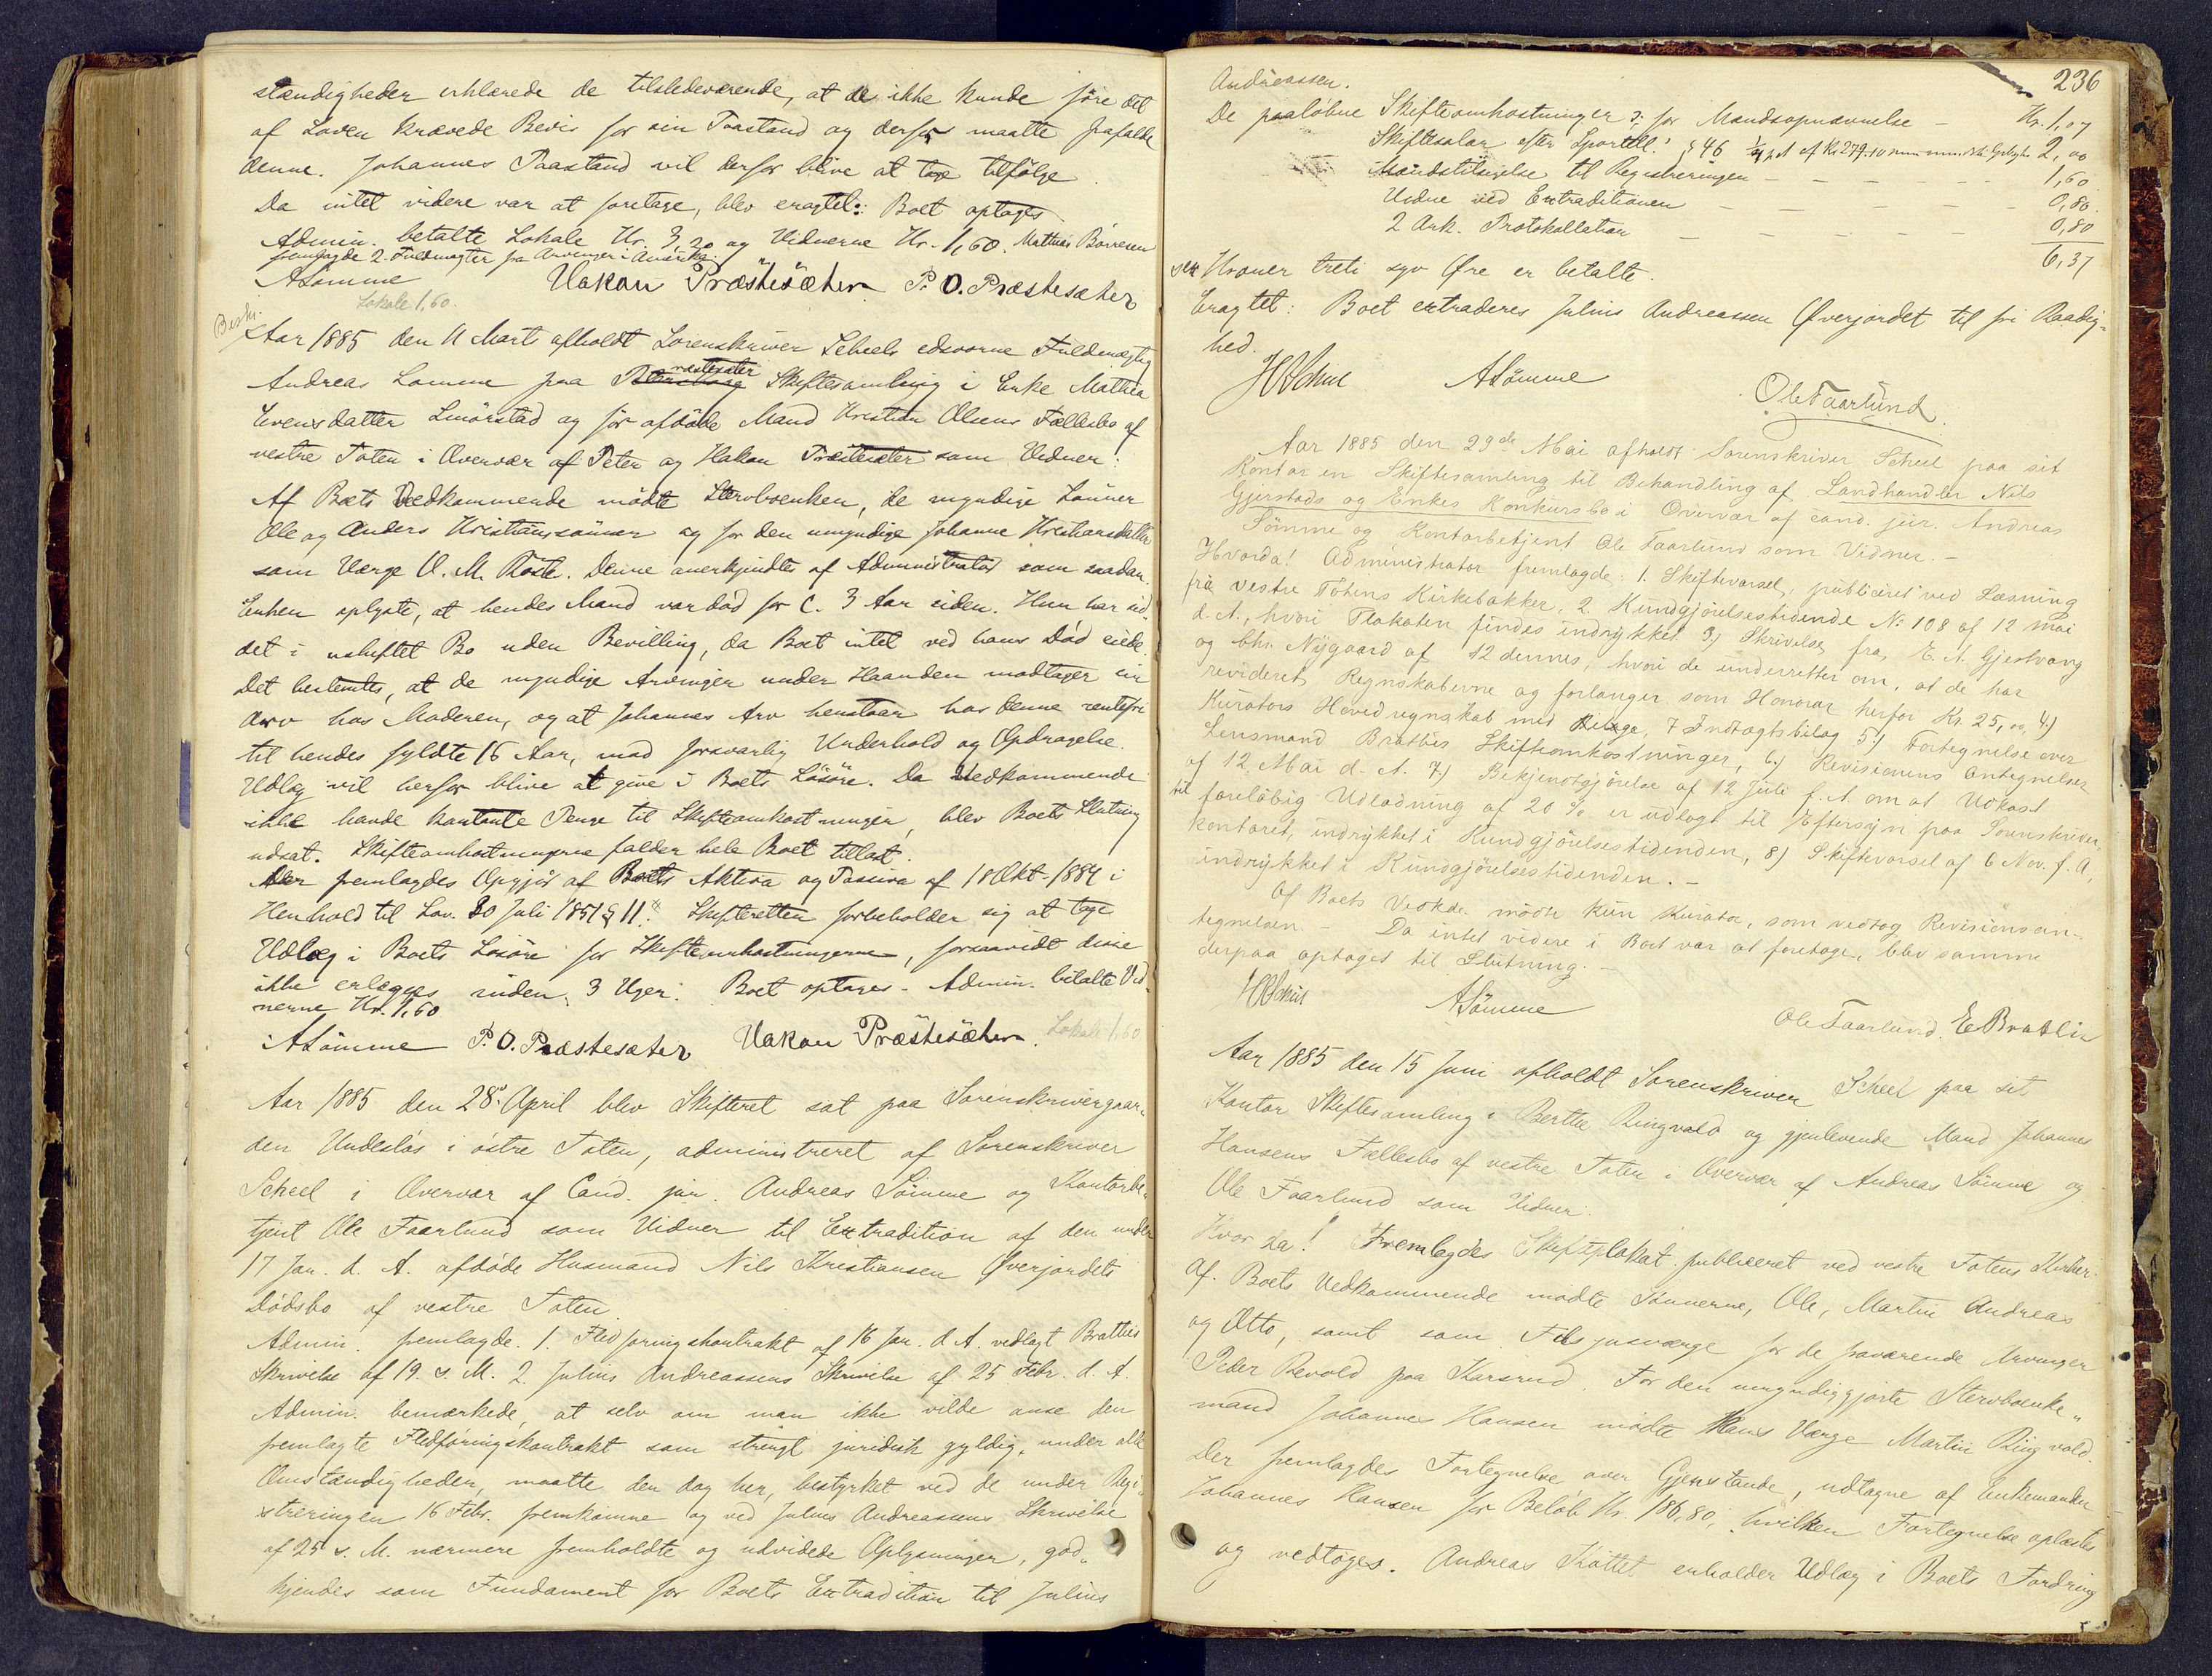 stændigheder erklærede de tilstedeværende, at de ikke kunde føre det
af Loven krævede Bevis for sin Paastand og derfor maatte frafalde
denne. Johannes Paastand vil derfor blive at tage tilfølge.
Da intet videre var at foretage, blev eragtet: Boet optages.
Admin. betalte Lokale Kr. 3,20 og Vidnerne Kr. 1,60. Mathias Børresen
fremlagde 2. Fuldmagter fra Arvinger i Amerika.
ASömme Hakon Præstesæter P. O. Præstesæter
Lokale 1,60.
Beskr.
Aar 1885 den 11 Marts afholdt Sorenskriver Scheels edsvorne Fuldmægtig
Andreas Sømme paa Præstesæter Skiftesamling i Enke Mathea
Evensdatter Smørstad og før afdøde Mand Kristian Olsens Fællesbo af
vestre Toten i Overvær af Peter og Hakon Præstesæter som Vidner:
Af Boets Vedkommende mødte Stervboenken, de myndige Sønner
Ole og Anders Kristiansønner og for den umyndige Johanne Kristiansdatter
som Værge O. M. Røste. Denne anerkjendtes af Administrator som saadan.
Enken oplyste, at hendes Mand var død for c. 3 Aar siden. Hun har sid-
det i uskiftet Bo uden Bevilling, da Boet intet ved hans Død eiede.
Det bestemtes, at de myndige Arvinger under Haanden modtager sin
Arv hos Moderen, og at Johannes Arv henstaar hos denne rentefri
til hendes fyldte 16 Aar, mod forsvarlig Underhold og Opdragelse.
Udlæg vil herfor blive at give i Boets Løsøre. Da Vedkommende
ikke havde kontante Penge til Skifteomkostningen, blev Boets Slutning
udsat. Skifteomkostningerne falder hele Boet tillast.
Der fremlagdes Opgjør af Boets Aktiva og Passiva af 18 Okt. 1884 i
Henhold til Lov. 30 Juli 1851 § 11. Skifteretten forbeholder sig at tage
Udlæg i Boets Løsøre for Skifteomkostningerne, forsaavidt disse
ikke erlægges inden 3 Uger. Boet optages. Admin. betalte Vid-
nerne Kr. 1,60
ASömme P. O. Præstesæter Hakon Præstesæter. Lokale 1,60
Aar 1885 den 28de April blev Skifteret sat paa Sorenskrivergaar-
den Undeslös i östre Toten, administreret af Sorenskriver
Scheel i Overvær af Cand. jur. Andreas Sömme og Kontorbe-
tjent Ole Faarlund som Vidner til Extradition af den under
17 Jan. d. A. afdøde Husmand Nils Kristiansen Øverjordets
Dødsbo af vestre Toten
Admin. fremlagde. 1. Fledføringskontrakt af 16 Jan. d. A. vedlagt Brattlies
Skrivelse af 19. s. M. 2. Julius Andreassens Skrivelse af 25 Febr. d. A.
Admin. bemærkede, at selv om man ikke vilde anse den
fremlagte Fledføringskontrakt som strengt juridisk gyldig, under alle
Omstændigheder, maatte den dog her, bestyrket ved de under Regi-
streringen 16 Febr. fremkomne og ved Julius Andreassens Skrivelse
af 25 s. M. nærmere fremholdte og udvidede Oplysninger, god-
kjendes som Fundament for Boets Extradition til Julius
236
Andreassen.
De paaløbne Skifteomkostninger ɔ: for Mandsopnævnelse — Kr. 1,07
Skiftesalær efter Sportell. § 46 af Kr 279.10 2,00
Mandstilsigelse til Registreringen — 1,60
Vidne ved Extraditionen — 0,80
2 Ark. Protokollation — 0,80
6,37
sex Kroner treti syv Øre er betalte.
Eragtet: Boet extraderes Julius Andreassen Øverjordet til fri Raadig-
hed.
HScheel ASömme Ole Faarlund
Aar 1885 den 29de Mai afholdt Sorenskriver Scheel paa sit
Kontor en Skiftesamling til Behandling af Landhandler Nils
Gjerstads og Enkes Konkursbo i Overvær af cand. jur. Andreas
Sömme og Kontorbetjent Ole Faarlund som Vidner. —
Hvorda! Administrator fremlagde: 1. Skiftevarsel, publiceret ved Læsning
fra vestre Totens Kirkebakker, 2. Kundgjörelsestidende No 108 af 12 Mai
d. A., hvori Plakaten findes indrykket. 3) Skrivelse fra E. A. Gjestvang
og Chr. Nygaard af 12 dennes, hvori de underretter om, at de har
revideret Regnskaberne og forlanger som Honorar herfor Kr. 25,00, 4)
Kurators Hovedregnskab med Bilage, 7 Indtægtsbilag 5) Fortegnelse over
Lensmand Brattlies Skifteomkostninger, 6) Revisionens Antegnelser
af 12 Mai d. A. 7) Bekjendtgjörelse af 12 Juli f. A. om at Udkast
til foreløbig Udlodning af 20 % er udlagt til Eftersyn paa Sorenskriver-
kontoret, indrykket i Kundgjörelsestidenden, 8) Skiftevarsel af 6 Nov. f. A,
indrykket i Kundgjörelsestidenden. —
Af Boets Vedkde. mødte kun Kurator, som vedtog Revisionsan-
tegnelsen. — Da intet videre i Boet var at foretage, blev samme
derpaa optaget til Slutning. —
HScheel ASömme Ole Faarlund. E Brattlie
Aar 1885 den 15 Juni afholdt Sorenskriver Scheel paa sit
Kontor Skiftesamling i Berthe Ringvold og gjenlevende Mand Johannes
Hansens Fællesbo af vestre Toten i Overvær af Andreas Sömme og
Ole Faarlund som Vidner.
Hvor da! Fremlagdes Skifteplakat publiceret ved vestre Totens Kirker.
Af Boets Vedkommende mødte Sønnerne, Ole, Martin Andreas
og Otto, samt som Tilsynsværge for de fraværende Arvinger
Peder Revold paa Karsrud. For den umyndiggjorte Stervboenke-
mand Johannes Hansen mødte Hans Værge Martin Ringvold.
Der fremlagdes Fortegnelse over Gjenstande, udtagne af Enkemanden
Johannes Hansen for Beløb Kr. 186,80, hvilken Fortegnelse oplæstes
og vedtoges. Andreas Kottet erholder Udlæg i Boets Fordring